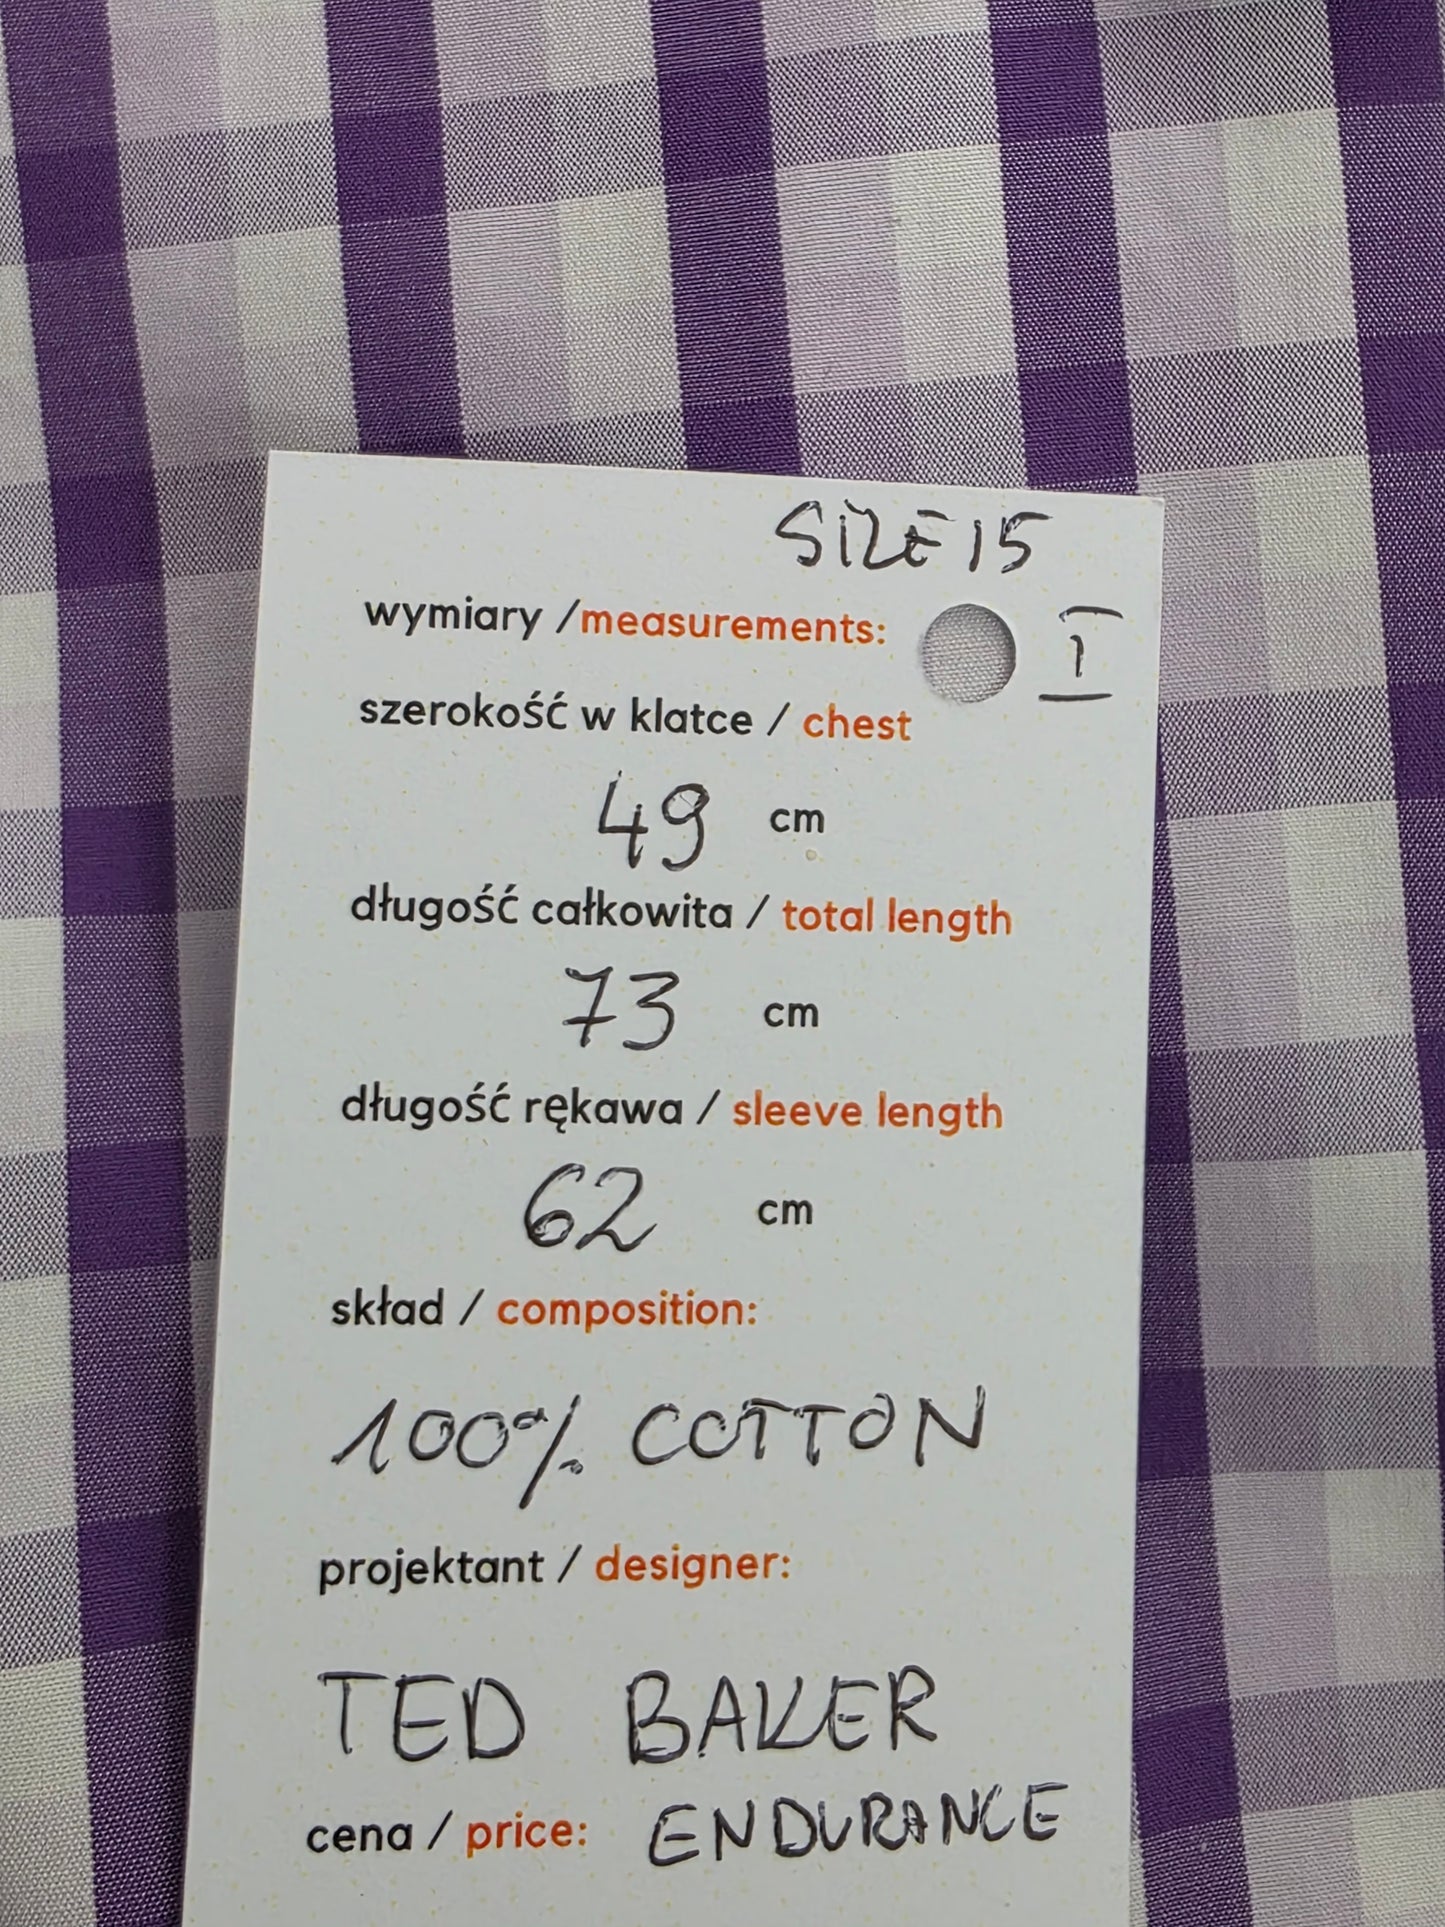 SIZE 15
wymiary /measurements:
I
szerokość w klatce / chest
49 cm
długość całkowita / total length
73 cm
długość rękawa / sleeve length
62 cm
skład / composition:
100% COTTON
projektant / designer:
TED BAKER
cena / price: ENDURANCE